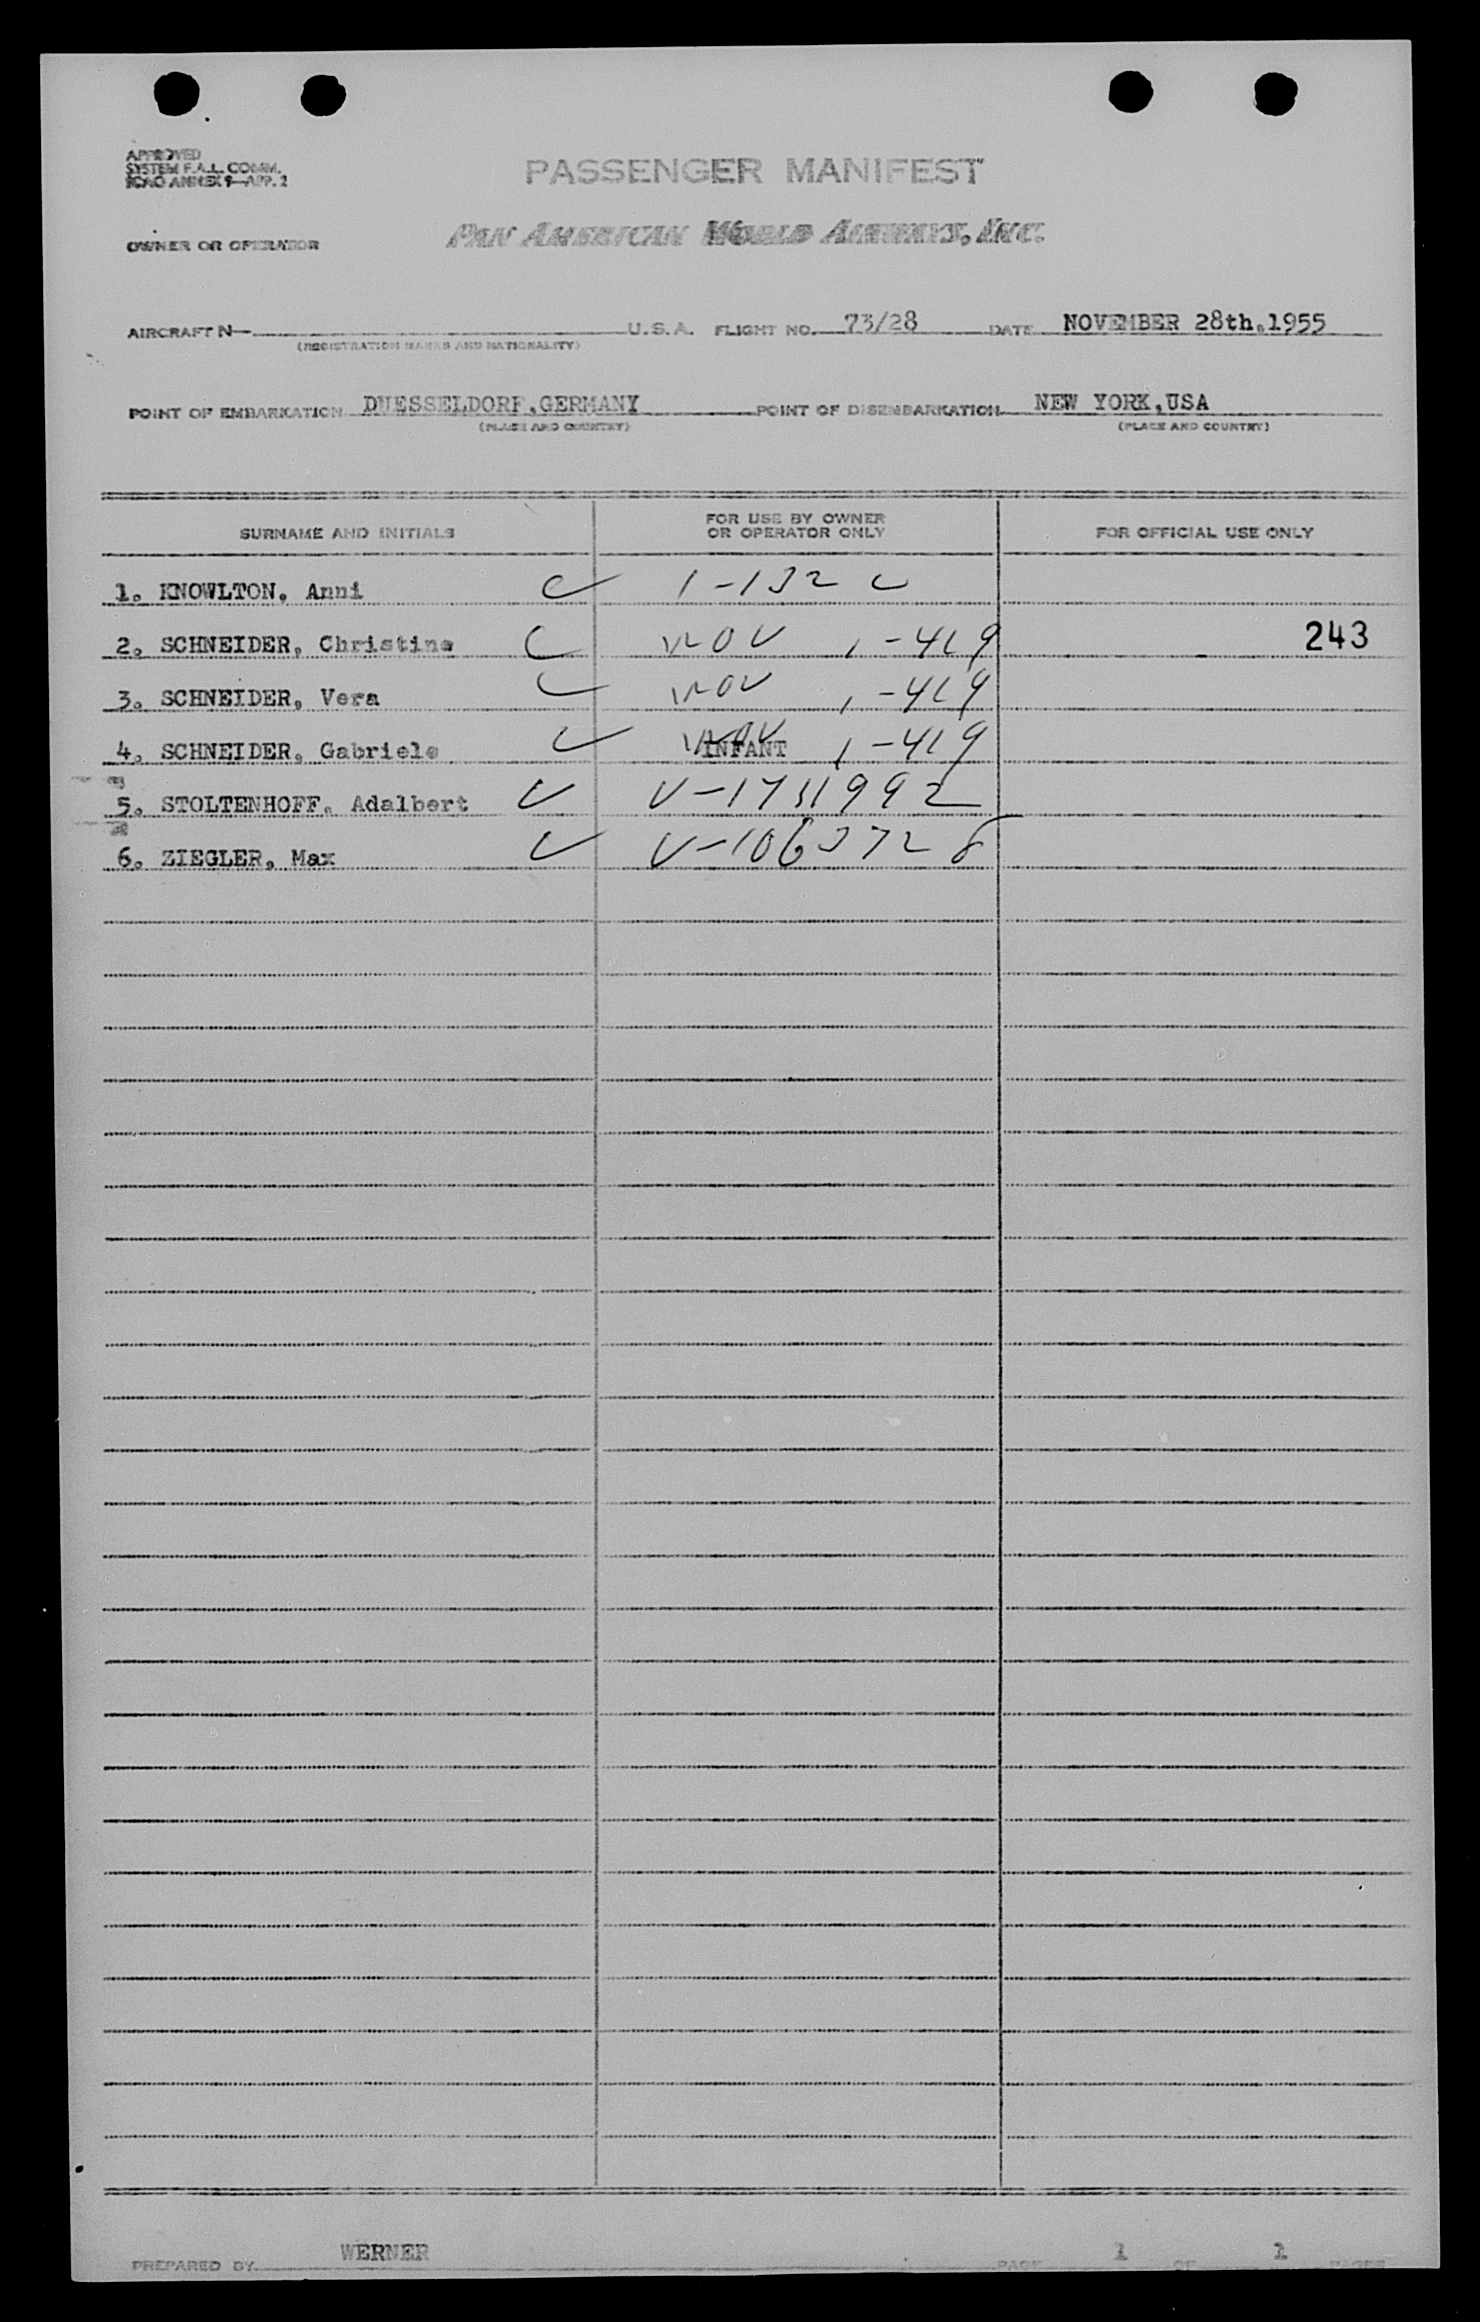 APPROVED
SYSTEM F.A.L. COMM.
ICAO ANNEX 9—APP. 2
PASSENGER MANIFEST
OWNER OR OPERATOR PAN AMERICAN WORLD AIRWAYS, INC.
AIRCRAFT N— U.S.A. FLIGHT NO. 73/28 DATE NOVEMBER 28th.1955
(REGISTRATION MARKS AND NATIONALITY)
POINT OF EMBARKATION DUESSELDORF,GERMANY POINT OF DISEMBARKATION NEW YORK,USA
(PLACE AND COUNTRY) (PLACE AND COUNTRY)
SURNAME AND INITIALS FOR USE BY OWNER OR OPERATOR ONLY FOR OFFICIAL USE ONLY
1. KNOWLTON, Anni 1-132
2. SCHNEIDER, Christine 1-419 243
3. SCHNEIDER, Vera 1-419
4. SCHNEIDER, Gabriele INFANT 1-419
5. STOLTENHOFF, Adalbert
6. ZIEGLER, Max V-1063728
PREPARED BY WERNER PAGE 1 OF 1 PAGES